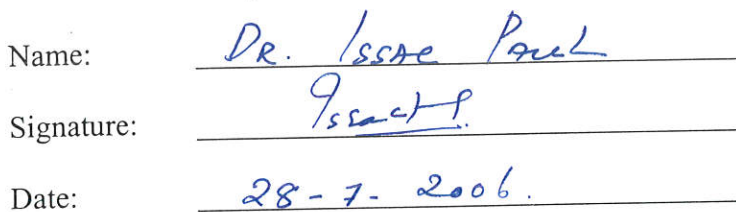 Name: DR. ISSAC PAUL
Signature: Issac P.
Date: 28-7-2006.